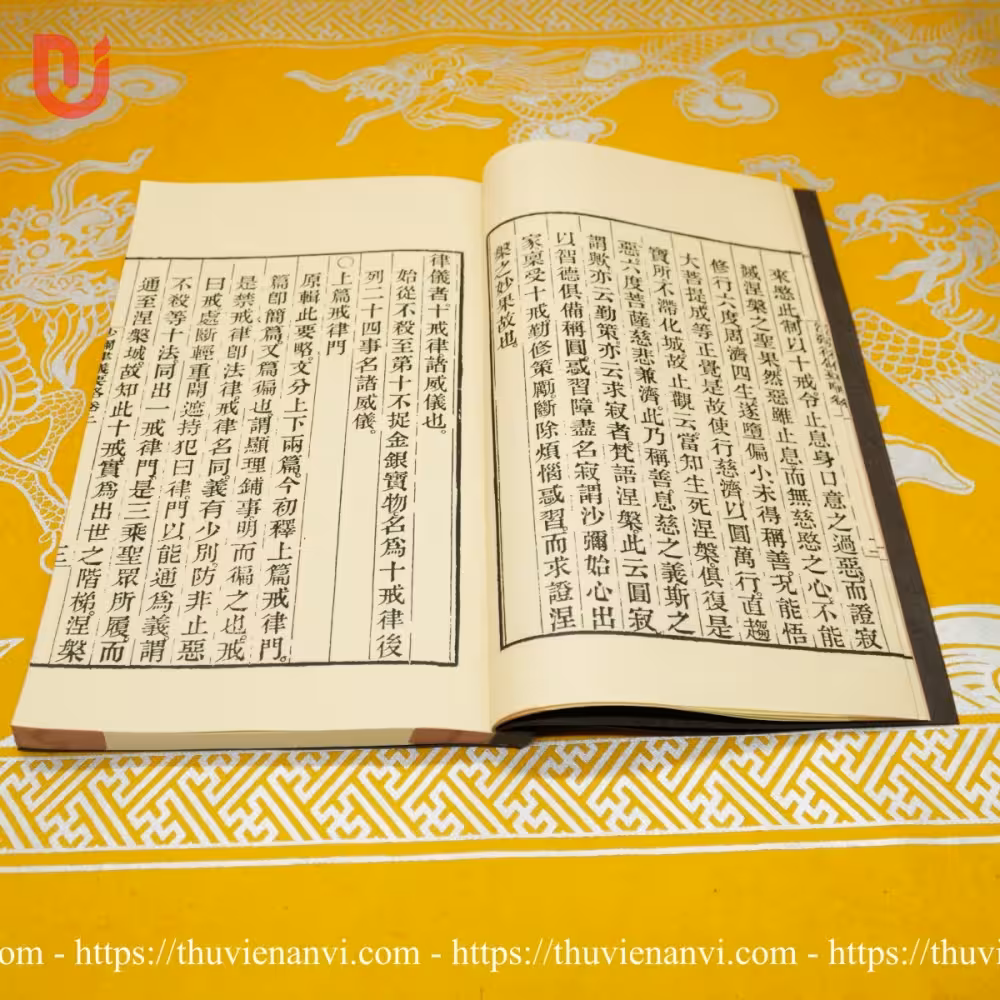 來愍此制以十戒令止息身口意之過惡而證寂
滅涅槃之聖果然惡雖止息而無慈愍之心不能
修行六度周濟四生遂墮偏小未得稱善况能悟
大菩提成等正覺是故使行慈濟以圓萬行直趨
寶所不滯化城故止觀云當知生死涅槃俱復是
惡六度菩薩慈悲兼濟此乃稱善息慈之義斯之
謂歟亦云勤策亦云求寂者梵語涅槃此云圓寂
以智德俱備稱圓惑習障盡名寂謂沙彌始心出
家稟受十戒勤修策勵斷除煩惱惑習而求證涅
槃之妙果故也。
律儀者十戒律諸威儀也。
始從不殺至第十不捉金銀寶物名爲十戒律後
列二十四事名諸威儀。
○上篇戒律門
原輯此要略文分上下兩篇今初釋上篇戒律門。
篇卽簡篇文篇徧也謂顯理鋪事明而徧之也戒
是禁戒律卽法律戒律名同義有少別防非止惡
曰戒處斷輕重開遮持犯曰律門以能通爲義謂
不殺等十法同出一戒律門是三乘聖眾所履而
通至涅槃城故知此十戒實爲出世之階梯涅槃
三
.com - https://thuvienanvi.com - https://thuvienanvi.com - https://thuvi